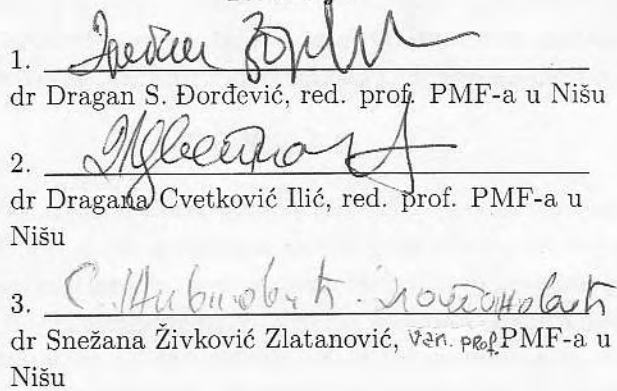 1.
dr Dragan S. Đorđević, red. prof. PMF-a u Nišu
2.
dr Dragana Cvetković Ilić, red. prof. PMF-a u
Nišu
3. С. Живковић Златановић
dr Snežana Živković Zlatanović, van. prof. PMF-a u
Nišu